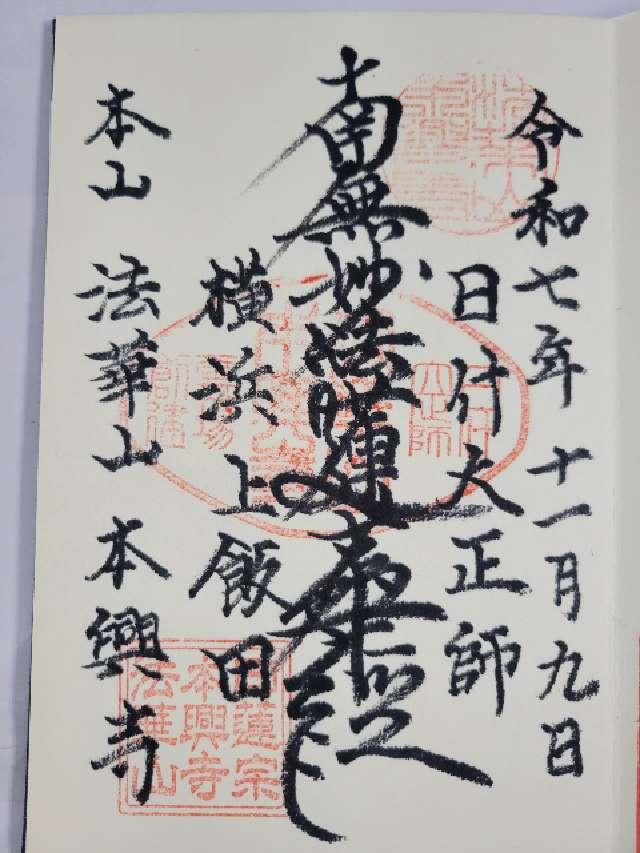 令和七年十一月九日
日付大正師
南無妙法蓮華経
横浜上飯田
本山 法華山 本興寺
日蓮宗
本興寺
法華山